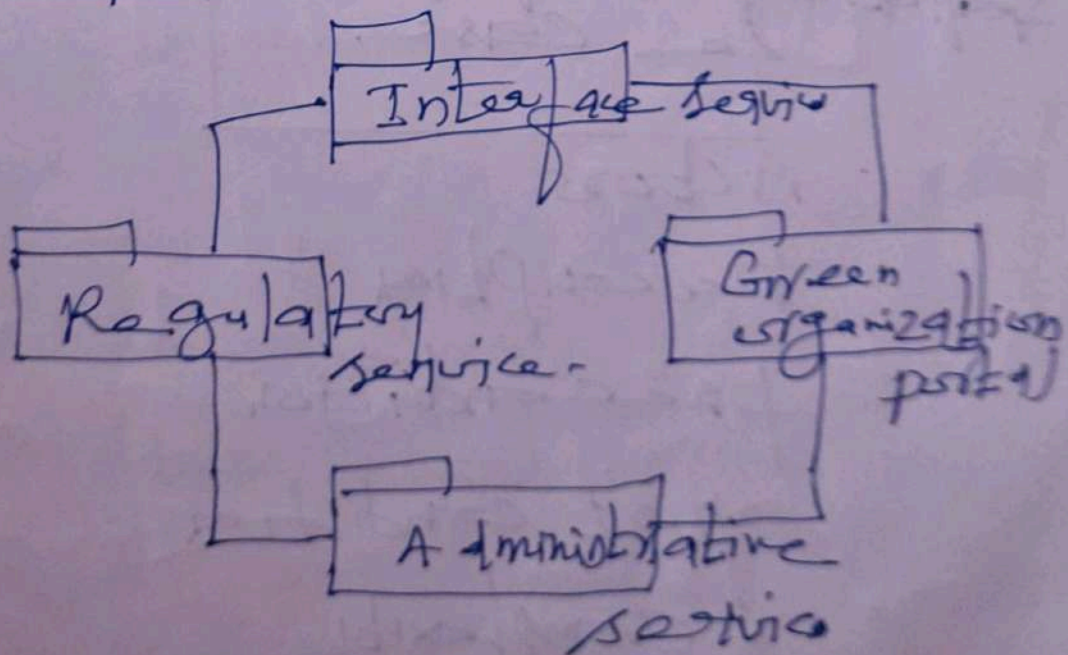 Interface service
Regulatory
service.
Green
organization
portal
Administrative
service